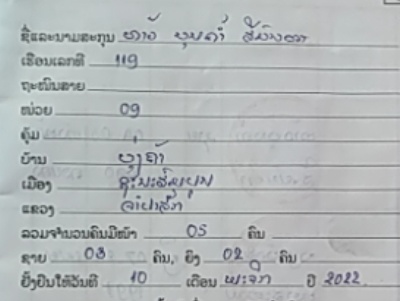 ຊື່ແລະນາມສະກຸນ ທ້າວ ບຸນຄຳ
ເຮືອນເລກທີ 119
ຖະໜົນສາຍ
ໜ່ວຍ 09
ຄຸ້ມ
ບ້ານ
ເມືອງ ຊະນະສົມບູນ
ແຂວງ ຈຳປາສັກ
ລວມຈຳນວນຄົນມີໜ້າ 05 ຄົນ
ຊາຍ 03 ຄົນ, ຍິງ 02 ຄົນ
ຢັ້ງຢືນໃຫ້ວັນທີ 10 ເດືອນ ພະຈິກ ປີ 2022.